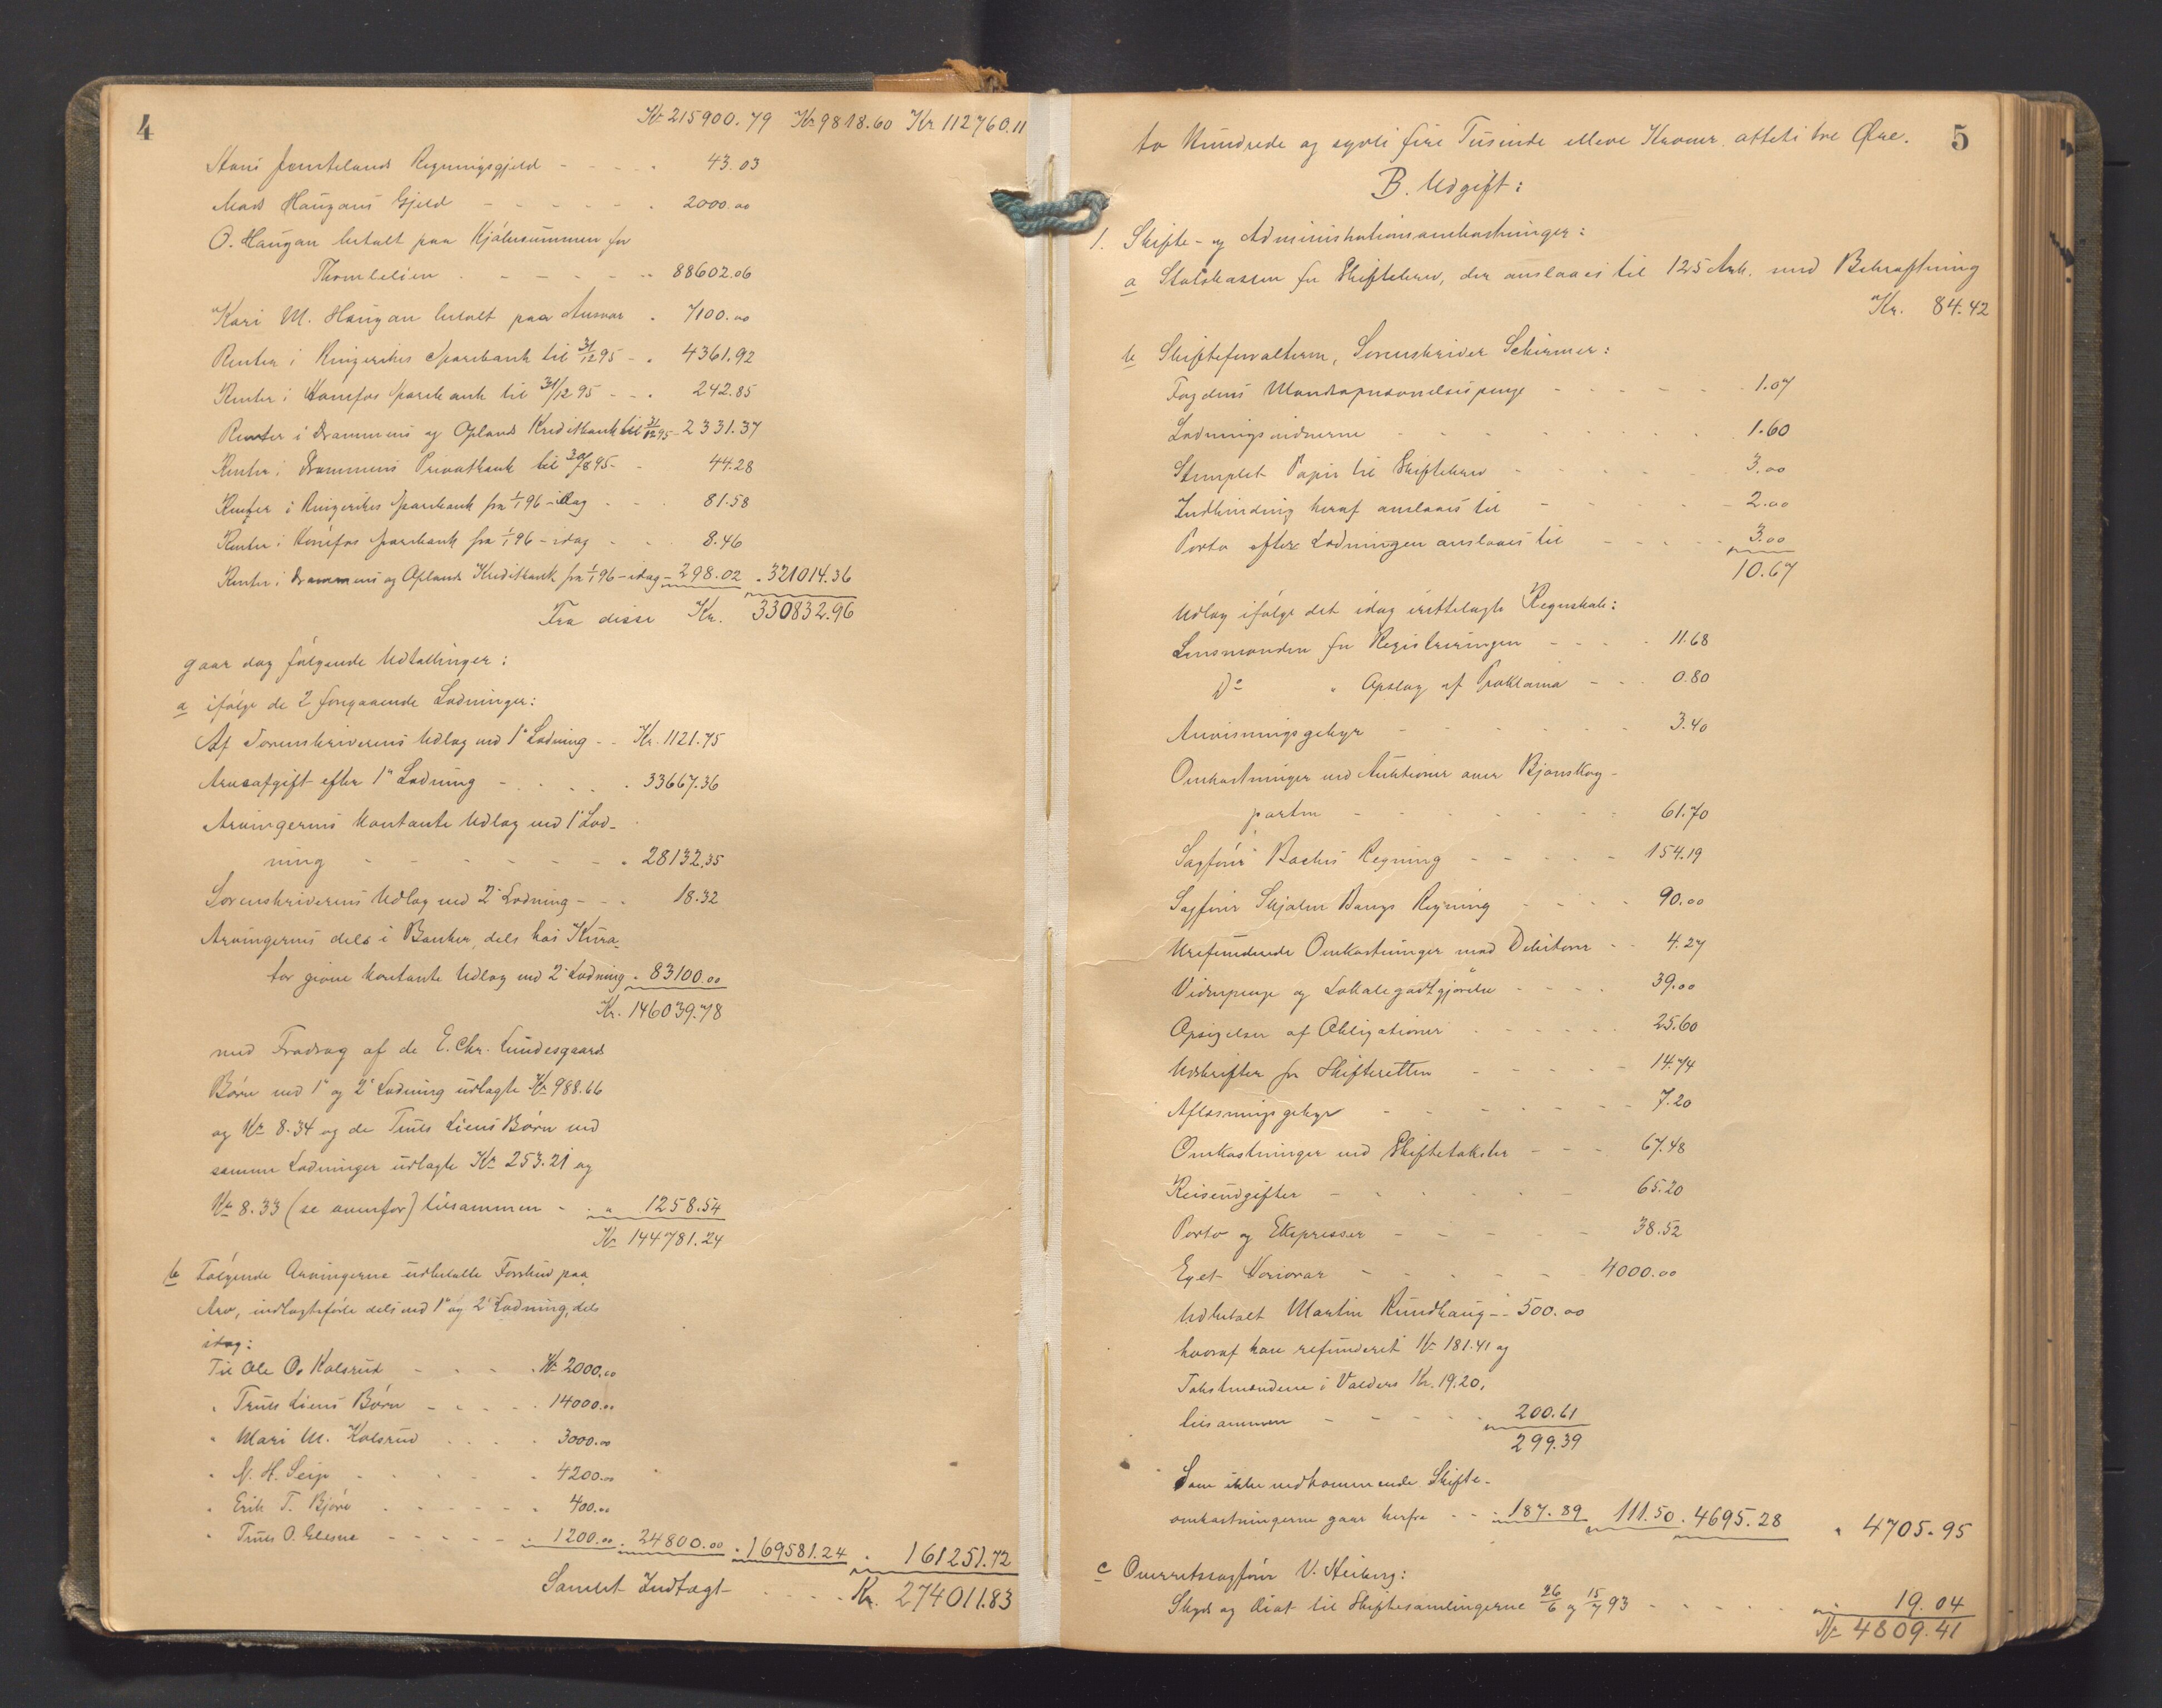 4
Kr 215900.79 Kr 9818.60 Kr 112760.11
Hans Jemtelands Regningsgjeld - - - 43.03
Mads Haugans Gjeld - - - 2000.00
O. Haugan betalt paa Kjøbesummen for
Thomlelien - - - " 88602.06
Kari M. Haugan betalt paa Ansvar " 7100.00
Renter i Ringerikes Sparebank til 31/12 95 - " 4361.92
Renter i Hønefos Sparebank til 31/12 95 - - " 242.85
Renter i Drammens og Oplands Kreditbank til 31/12 95 - 2331.37
Renter i Drammens Privatbank til 30/8 95 - - 44.28
Renter i Ringerikes Sparebank fra 1/1 96 - idag - - 81.58
Renter i Hønefos Sparebank fra 1/1 96 - idag - - 8.46
Renter i Drammens og Oplands Kreditbank fra 1/1 96 - idag - 298.02 " 321014.36
Fra disse Kr. 330832.96
gaar dog følgende Udtællinger:
a ifølge de 2 foregaaende Lodninger:
Af Sorenskriverens Udlæg ved 1e Lodning - - Kr. 1121.75
Arveafgift efter 1e Lodning - - - " 33667.36
Arvingernes kontante Udlæg ved 1e Lod-
ning - - - " 28132.35
Sorenskriverens Udlæg ved 2e Lodning - - " 18.32
Arvingernes dels i Banker, dels hos Kura-
tor givne kontante Udlæg ved 2e Lodning " 83100.00
Kr. 146039.78
med Fradrag af de E. Chr. Lundesgaards
Børn ved 1e og 2e Lodning udlagte Kr 988.66
og Kr 8.34 og de Truls Liens Børn ved
samme Lodninger udlagte Kr 253.21 og
Kr 8.33 (se ovenfor) tilsammen - " 1258.54
Kr 144781.24
b Følgende Arvingerne udbetalte Forskud paa
Arv, indtægtsførte dels ved 1e og 2e Lodning, dels
idag:
Til Ole O. Kolsrud - - - Kr 2000.00
" Truls Liens Børn - - - 14000.00
" Mari M. Kolsrud - - - 3000.00
" N. H. Seip - - - 4200.00
" Erik T. Bjøre - - - 400.00
" Truls O. - - - 1200.00 " 24800.00 " 169581.24 " 161251.72
Samlet Indtægt - - - Kr. 274011.83
5
to Hundrede og sytti fire Tusinde elleve Kroner, otteti tre Øre.
B. Udgift:
1. Skifte- og Administrationsomkostninger:
a Statskassen for Skiftebrev, der anslaaes til 125 Ark. med Bekræftning
Kr. 84.42
b Skifteforvalteren, Sorenskriver Schirmer:
Fogdens - - - 1.07
Lodningsvidnerne - - - 1.60
Stemplet Papir til Skiftebrev - - - 3.00
Indbinding heraf anslaaes til - - - 2.00
Porto efter Lodningen anslaaes til - - - 3.00
10.67
Udlæg ifølge det idag irettelagte Regnskab:
Lensmanden for Registreringen - - - 11.68
Do " Opslag af Proklama - - - 0.80
Anvisningsgebyr - - - 3.40
Omkostninger ved Auktioner over Bjonskog-
parten - - - 61.70
Sagfører Bachs Regning - - - 154.19
Sagfører Skjalm Bangs Regning - - - 90.00
Urefunderede Omkostninger mod Debitorer - - 4.27
Vidnepenge og Lokalegodtgjørelse - - - 39.00
Opsigelser af Obligationer - - - 25.60
Udskrifter for Skifteretten - - - 14.74
Aflæsningsgebyr - - - 7.20
Omkostninger ved Skiftetakster - - - 67.48
Reiseudgifter - - - 65.20
Porto og Ekspresser - - - 38.52
Eget Honorar - - - 4000.00
Udbetalt Martin Rundhaug - - 500.00
hvoraf han refunderet Kr 181.41 og
Takstmændene i Valders Kr. 19.20,
tilsammen - - - " 200.61
299.39
Som ikke vedkommende Skifte-
omkostningerne gaar herfra - - 187.89 111.50 " 4695.28 " 4705.95
c Overretssagfører V. Heiberg:
Skyds og Diæt til Skiftesamlingerne 26/6 og 15/7 93 - - - " 19.04
Kr 4809.41